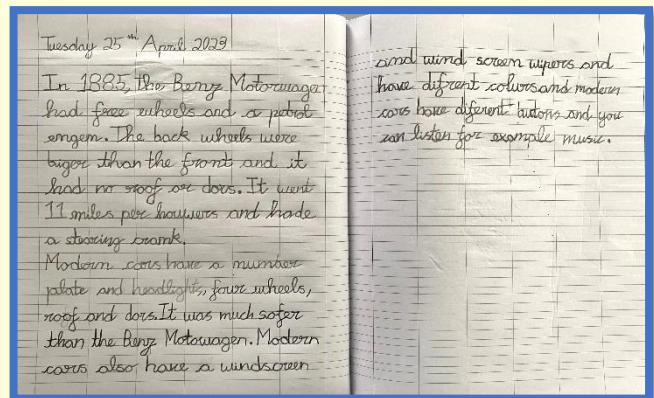 Tuesday 25th April 2023
In 1885, the Benz Motorwagen
had free wheels and a petrol
engem. The back wheels were
biger than the front and it
had no roof or dors. It went
11 miles per houwers and hade
a stearing cramk.
Modern cars have a number
palate and headlights, four wheels,
roof and dors. It was much safer
than the Benz Motowagen. Modern
cars also have a windscreen
and wind screen wipers and
have difrent colurs and modern
cars have diferent butons and you
can listen for example music.